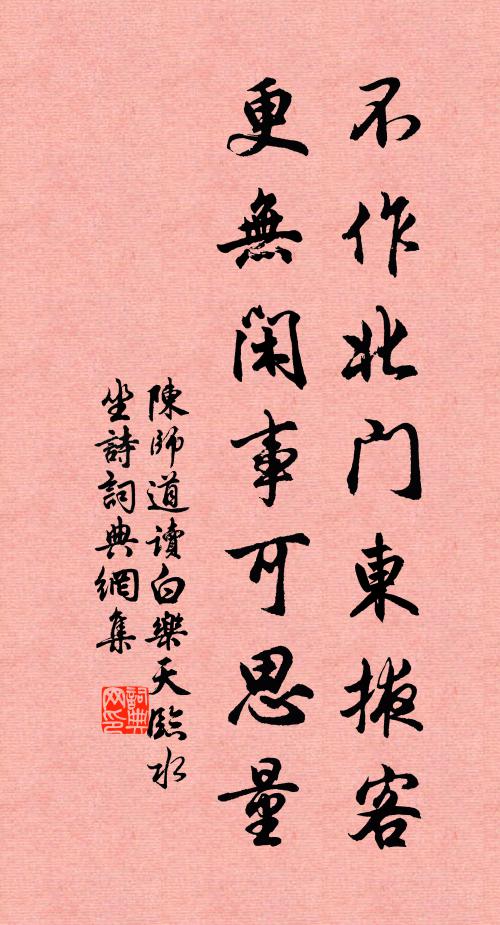 不作北門東掖客
更無閑事可思量
陳師道讀白樂天臨水
坐詩詞典網集
詞典
网印